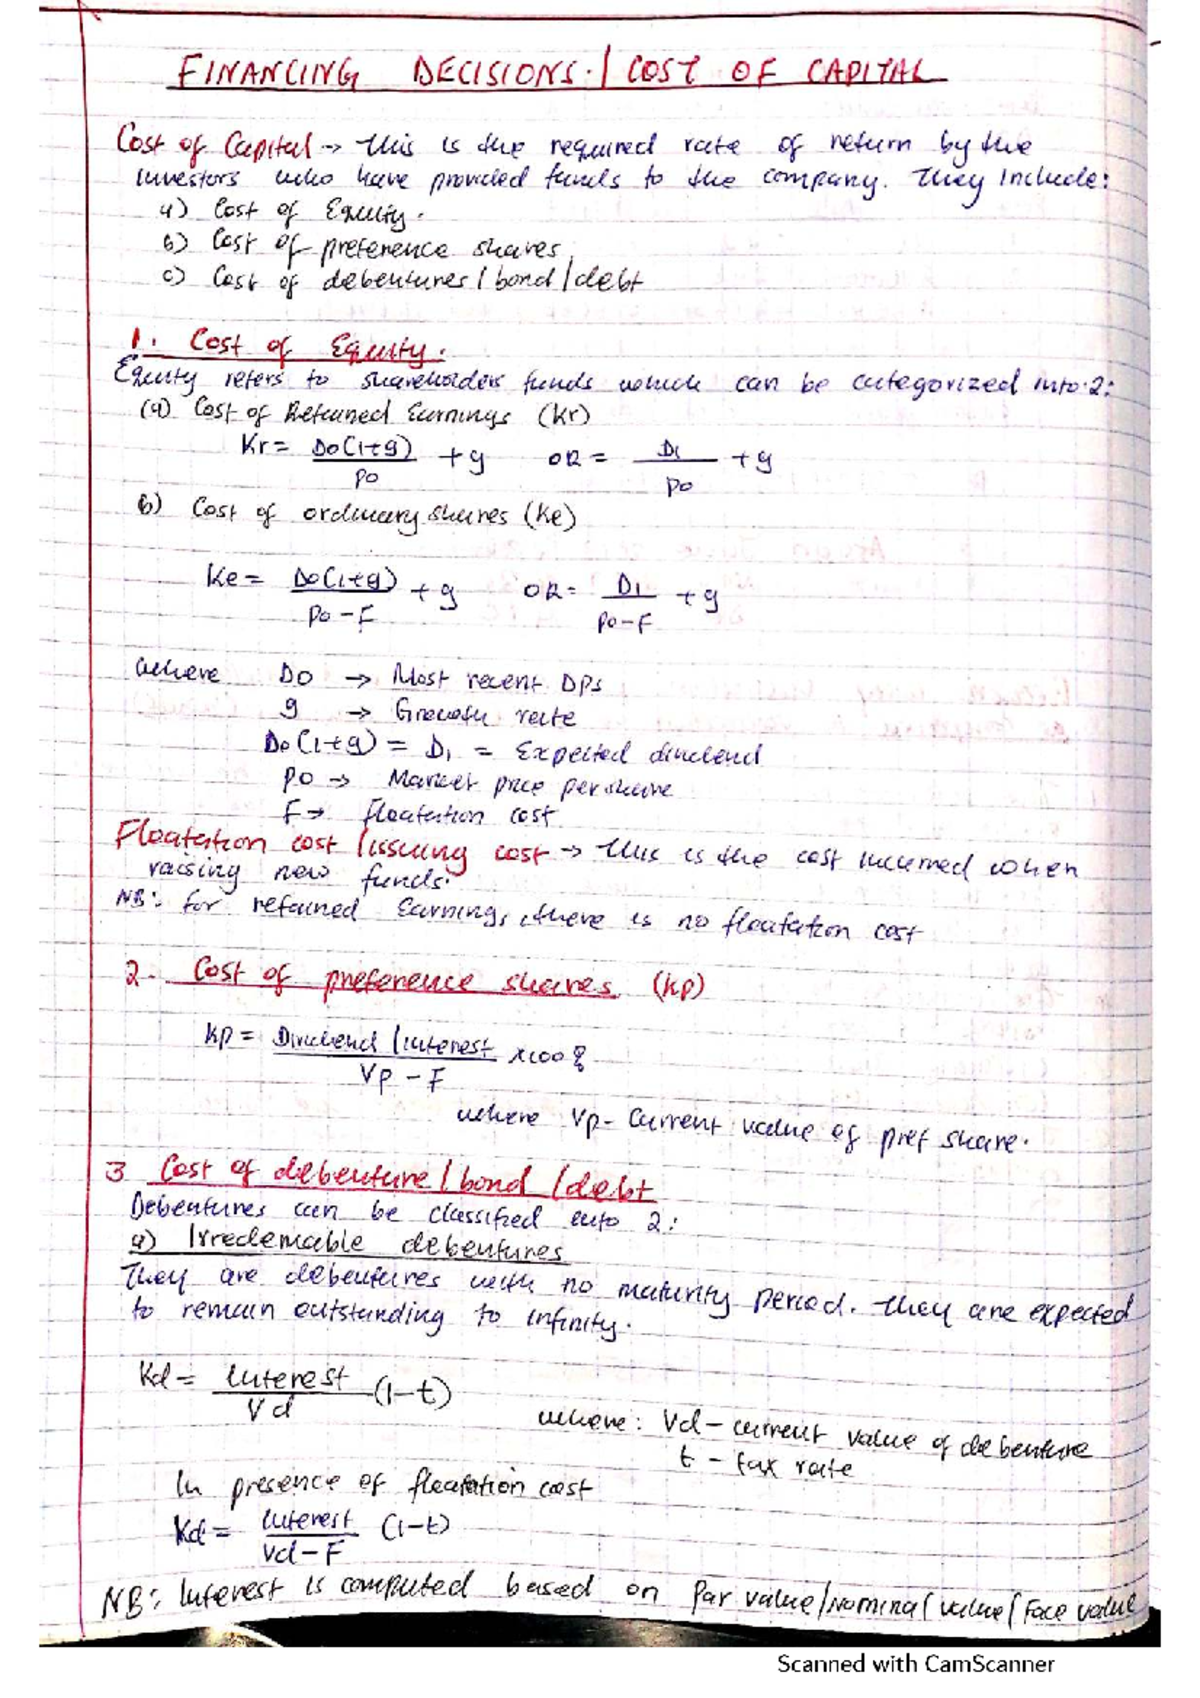 FINANCING DECISIONS./ COST OF CAPITAL
Cost of Capital → this is the required rate of return by the
investors who have provided funds to the company. They include:
a) Cost of Equity.
b) Cost of preference shares
c) Cost of debentures / bond / debt
1. Cost of Equity.
Equity refers to shareholders funds which can be categorized into 2:
(a) Cost of Retained Earnings (Kr)
Kr = Do(1+g) / Po + g OR = D1 / Po + g
b) Cost of ordinary shares (Ke)
Ke = Do(1+g) / Po - F + g OR = D1 / Po-F + g
where Do → Most recent DPs
g → Growth rate
Do(1+g) = D1 = Expected dividend
Po → Market price per share
F → floatation cost
Floatation cost / issuing cost → this is the cost incurred when
raising new funds.
NB: for retained Earnings, there is no floatation cost
2. Cost of preference shares (Kp)
Kp = Dividend / interest / Vp - F x100%
where Vp - Current value of pref share.
3 Cost of debenture / bond / debt
Debentures can be classified into 2:
a) Irredemable debentures
They are debentures with no maturity period. They are expected
to remain outstanding to infinity.
Kd = Interest / Vd (1-t)
where: Vd - current value of debenture
t - tax rate
In presence of floatation cost
Kd = Interest / Vd - F (1-t)
NB: Interest is computed based on Par value/Nominal value/Face value
Scanned with CamScanner